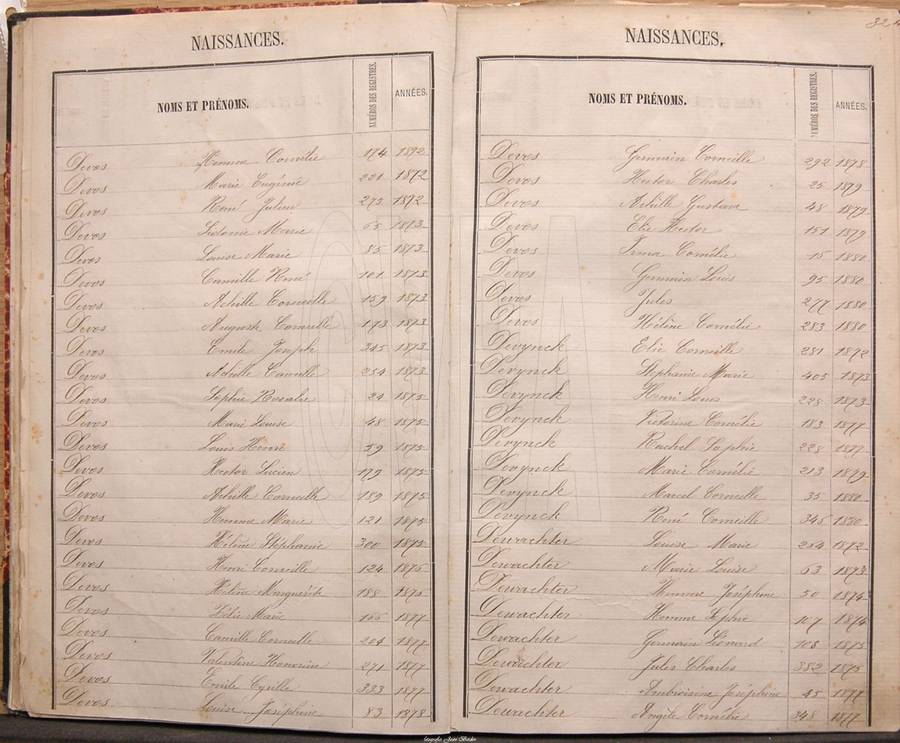 NAISSANCES.
NOMS ET PRÉNOMS. NUMÉROS DES REGISTRES. ANNÉES.
Devos Hemma Cornélie 174 1872
Devos Marie Eugénie 221 1872
Devos René Julien 273 1872
Devos Sidonie Marie 65 1873
Devos Louise Marie 85 1873
Devos Camille René 101 1873
Devos Achille Corneille 159 1873
Devos Auguste Corneille 173 1873
Devos Emile Joseph 345 1873
Devos Achille Camille 254 1873
Devos Sophie Rosalie 21 1875
Devos Marie Louise 48 1875
Devos Louis Henri 59 1875
Devos Hector Lucien 179 1875
Devos Achille Corneille 189 1875
Devos Hemma Marie 121 1875
Devos Hélène Stéphanie 300 1875
Devos Henri Corneille 124 1875
Devos Hélène Marguerite 188 1875
Devos Marie 1877
Devos Camille Corneille 204 1877
Devos Valentine Honorine 271 1877
Devos Emile Cyrille 333 1877
Devos Louise Joséphine 83 1878
NAISSANCES.
NOMS ET PRÉNOMS. NUMÉROS DES REGISTRES. ANNÉES.
Devos Germain Corneille 292 1878
Devos Hector Charles 25 1879
Devos Achille Gustave 48 1879
Devos Elie Hector 151 1879
Devos Irma Cornélie 15 1880
Devos Germain Louis 95 1880
Devos Jules 277 1880
Devos Hélène Cornélie 283 1880
Devynck Elie Corneille 281 1872
Devynck Stéphanie Marie 405 1873
Devynck Henri Louis 228 1873
Devynck Victorine Cornélie 183 1877
Devynck Rachel Sophie 228 1877
Devynck Marie Cornélie 213 1879
Devynck Marcel Corneille 35 1880
Devynck René Corneille 345 1880
Dewachter Louise Marie 254 1872
Dewachter Marie Louise 63 1873
Dewachter Hemma Joséphine 50 1874
Dewachter Hemma Sophie 107 1874
Dewachter Germain Léonard 108 1875
Dewachter Jules Charles 382 1875
Dewachter Ambroisine Joséphine 45 1877
Dewachter Angèle Cornélie 348 1877